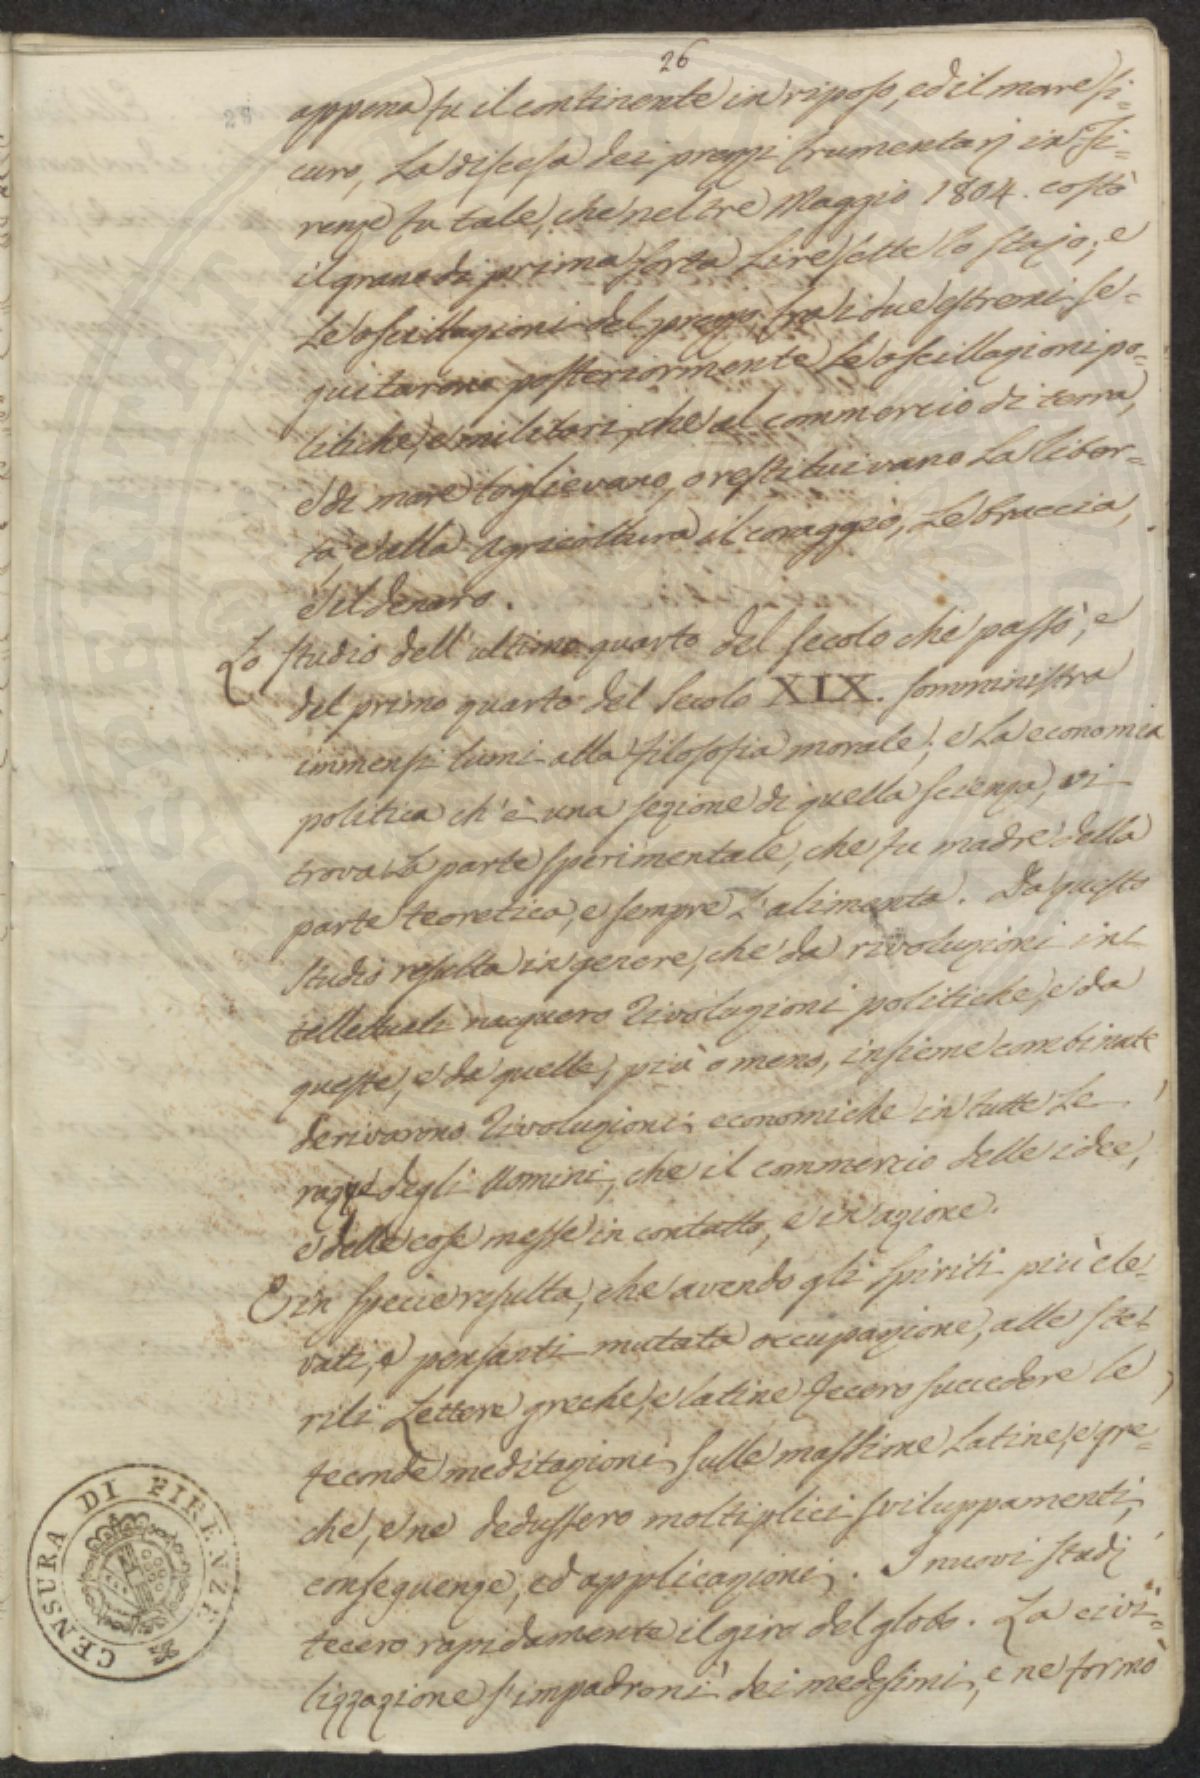 26
appena fu il continente in riposo, ed il mare si-
curo, La discesa dei prezzi frumentarj in Fi-
renze fu tale, che nel tre Maggio 1804. costò
il grano di prima sorta Lire sette lo stajo; e
Le oscillazioni del prezzo fra i due estremi se-
guitarono posteriormente Le oscillazioni po-
litiche, e militari, che al commercio di terra,
e di mare toglievano, o restituivano La liber-
tà, e alla Agricoltura il coraggio, Le braccia,
e il denaro.
Lo studio dell' ultimo quarto del secolo che passò, e
del primo quarto del Secolo XIX. somministra
immensi lumi alla filosofia morale; e La economia
politica ch' è una sezione di quella scienza, vi
trova La parte sperimentale, che fu madre della
parte teoretica, e sempre L'alimenta. Da questo
studio resulta in genere, che da rivoluzioni int
tellettuali nacquero Rivoluzioni politiche, e da
queste, e da quelle, più o meno, insieme combinate
derivarono Rivoluzioni economiche in tutte Le
razze degli Uomini, che il commercio delle idee,
e delle cose messe in contatto, e in azione.
E in specie resulta, che avendo gli Spiriti più ele-
vati, e pensanti mutata occupazione, alle ste-
rili Lettere greche, e latine fecero succedere le
feconde meditazioni sulle massime Latine, e gre-
che, e ne dedussero moltiplici sviluppamenti,
conseguenze, ed applicazioni. I nuovi studj
fecero rapidamente il giro del globo. La civi-
lizzazione s'impadronì dei medesimi, e ne formò
CENSURA DI FIRENZE